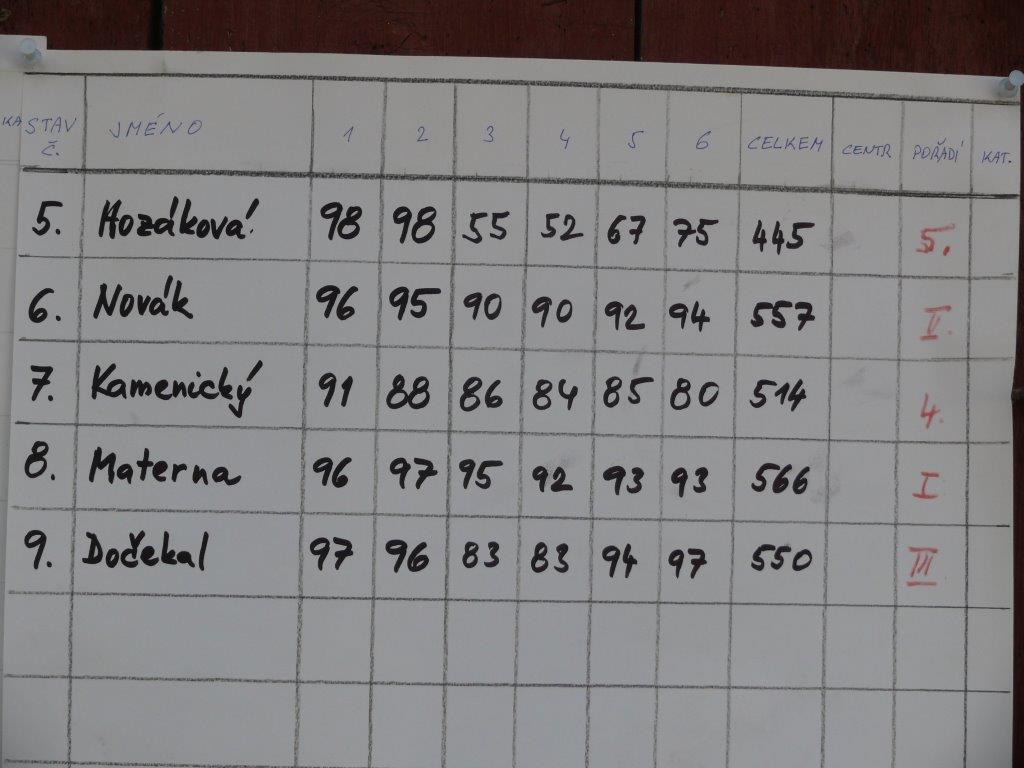 KA STAV Č. JMÉNO 1 2 3 4 5 6 CELKEM CENTR POŘADÍ KAT.
5. Hozáková 98 98 55 52 67 75 445 5.
6. Novák 96 95 90 90 92 94 557 II.
7. Kamenický 91 88 86 84 85 80 514 4.
8. Materna 96 97 95 92 93 93 566 I
9. Dočekal 97 96 83 83 94 97 550 III